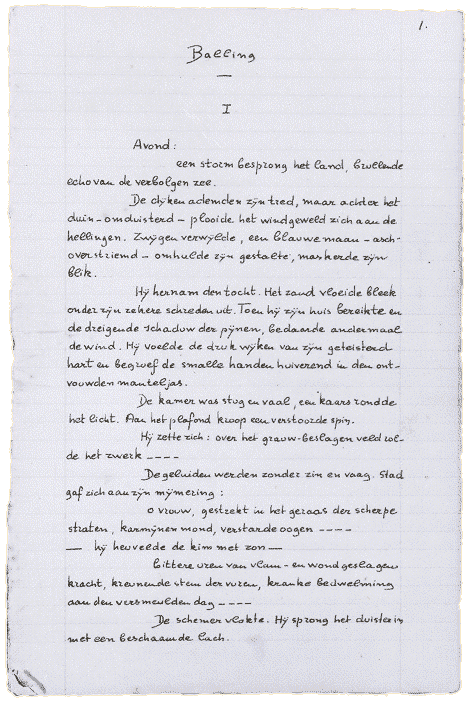 1.
Balling
I
Avond:
een storm besprong het land, brullende
echo van de verbolgen zee.
De dijken ademden zijn tred, maar achter het
duin - omduisterd - plooide het windgeweld zich aan de
hellingen. Zwijgen verwijlde, een blauwe maan - asch-
overstriemd - omhulde zijn gestalte, maskerde zijn
blik.
Hij hernam den tocht. Het zand vloeide bleek
onder zijn zekere schreden uit. Toen hij zijn huis bereikte en
de dreigende schaduw der pijnen, bedaarde andermaal
de wind. Hij voelde de druk wijken van zijn geteisterd
hart en begroef de smalle handen huiverend in den ont-
vouwden manteljas.
De kamer was stug en vaal, een kaars rondde
het licht. Aan het plafond kroop een verstoorde spin.
Hij zette zich: over het grauw-beslagen veld rol-
de het zwerk ----
De geluiden werden zonder zin en vaag. Stad
gaf zich aan zijn mijmering:
o vrouw, gestrekt in het geraas der scherpe
straten, karmijnen mond, verstarde oogen ----
— hij heuvelde de kim met zon —
bittere uren van vlam- en wondgeslagen
kracht, kreunende stem der vuren, kranke bedwelming
aan den versmeulden dag ----
De schemer vlokte. Hij sprong het duister in
met een beschaamde lach.